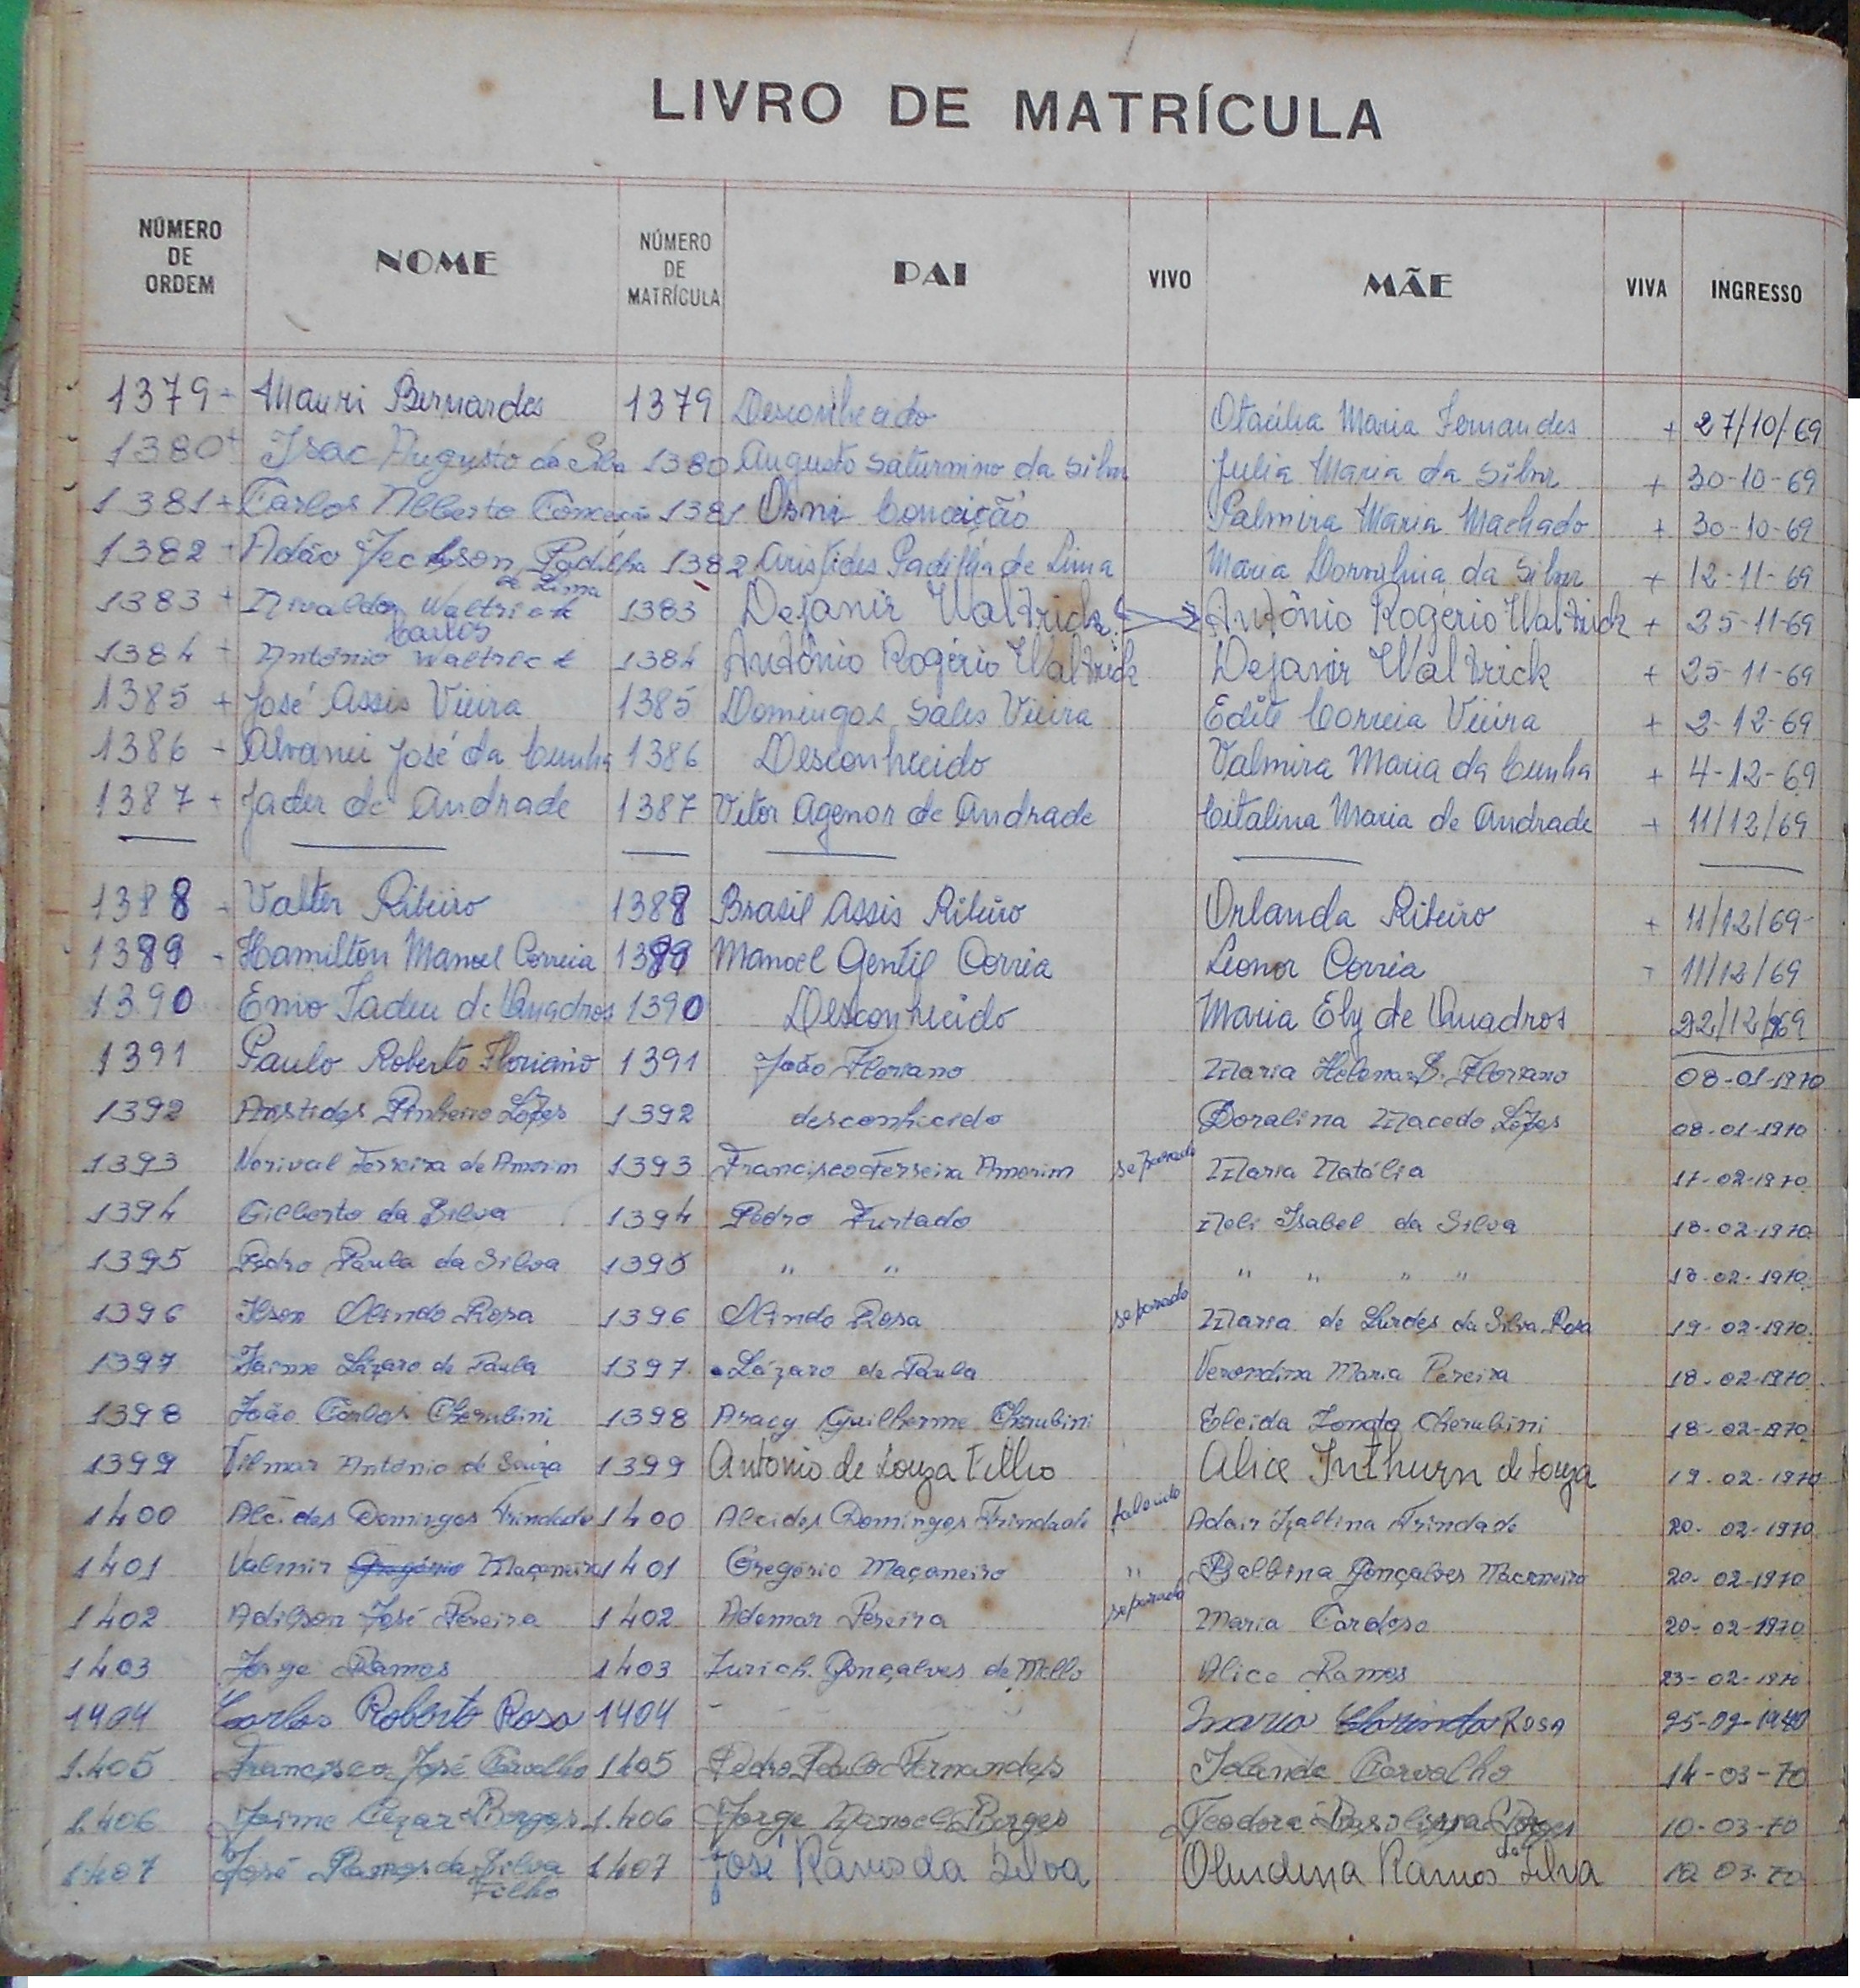 LIVRO DE MATRÍCULA
NÚMERO DE ORDEM NOME NÚMERO DE MATRÍCULA PAI VIVO MÃE VIVA INGRESSO
1379 - Mauri Bernardes 1379 Desconhecido Otacília Maria Fernandes + 27/10/69
1380 + Isac Augusto da Silva 1380 Augusto Saturnino da Silva Julia Maria da Silva + 30-10-69
1381 + Carlos Alberto Conceição 1381 Osni Conceição Palmira Maria Machado + 30-10-69
1382 + Adão Jeckson Padilha de Lima 1382 Aristides Padilha de Lima Maria Dorvalina da Silva + 12-11-69
1383 + Nivaldo Waltrick 1383 Dejanir Waltrick Antônio Rogério Waltrick + 25-11-69
1384 + Antônio Carlos Waltrick 1384 Antônio Rogério Waltrick Dejanir Waltrick + 25-11-69
1385 + José Assis Vieira 1385 Domingos Sales Vieira Edite Correia Vieira + 2-12-69
1386 - Alvanei José da Cunha 1386 Desconhecido Valmira Maria da Cunha + 4-12-69
1387 + Jader de Andrade 1387 Vitor Agenor de Andrade Citalina Maria de Andrade + 11/12/69
1388 - Valter Ribeiro 1388 Brasil Assis Ribeiro Orlanda Ribeiro + 11/12/69-
1389 - Hamilton Manoel Correia 1389 Manoel Gentil Correia Leonor Correia + 11/12/69
1390 Enio Tadeu de Quadros 1390 Desconhecido Maria Ely de Quadros 22/12/69
1391 Paulo Roberto Floriano 1391 João Floriano Maria Helena S. Floriano 08-01-1970
1392 Aristides Pinheiro Lopes 1392 desconhecido Doralina Macedo Lopes 08-01-1970
1393 Norival Ferreira de Amorim 1393 Francisco Ferreira Amorim separado Maria Natália 17-02-1970
1394 Gilberto da Silva 1394 Pedro Furtado Neli Isabel da Silva 18-02-1970
1395 Pedro Paula da Silva 1395 " " " " " " 18-02-1970
1396 Ilson Olindo Rosa 1396 Olindo Rosa separado Maria de Lurdes da Silva Rosa 19-02-1970
1397 Jaime Lázaro de Paula 1397 Lázaro de Paula Verondina Maria Pereira 18-02-1970
1398 João Carlos Cherubini 1398 Aracy Guilherme Cherubini Elcida Zonata Cherubini 18-02-1970
1399 Vilmar Antônio de Souza 1399 Antonio de Souza Filho Alice Inthurn de Souza 19-02-1970
1400 Alcides Domingos Trindade 1400 Alcides Domingos Trindade falecido Adair Izaltina Trindade 20-02-1970
1401 Valmir Gregório Maçaneiro 1401 Gregório Maçaneiro " Balbina Gonçalves Macaneiro 20-02-1970
1402 Adilson José Pereira 1402 Ademar Pereira separado Maria Cardoso 20-02-1970
1403 Jorge Ramos 1403 Zurich Gonçalves de Mello Alice Ramos 23-02-1970
1404 Carlos Roberto Rosa 1404 - Maria Clarinda Rosa 25-02-1970
1.405 Francisco José Carvalho 1405 Pedro Paulo Fernandes Iolanda Carvalho 14-03-70
1.406 Jaime Cezar Borges 1.406 Jorge Manoel Borges Teodora Basilissa Borges 10-03-70
1.407 José Ramos da Silva Filho 1407 José Ramos da Silva Olindina Ramos da Silva 12 03-70